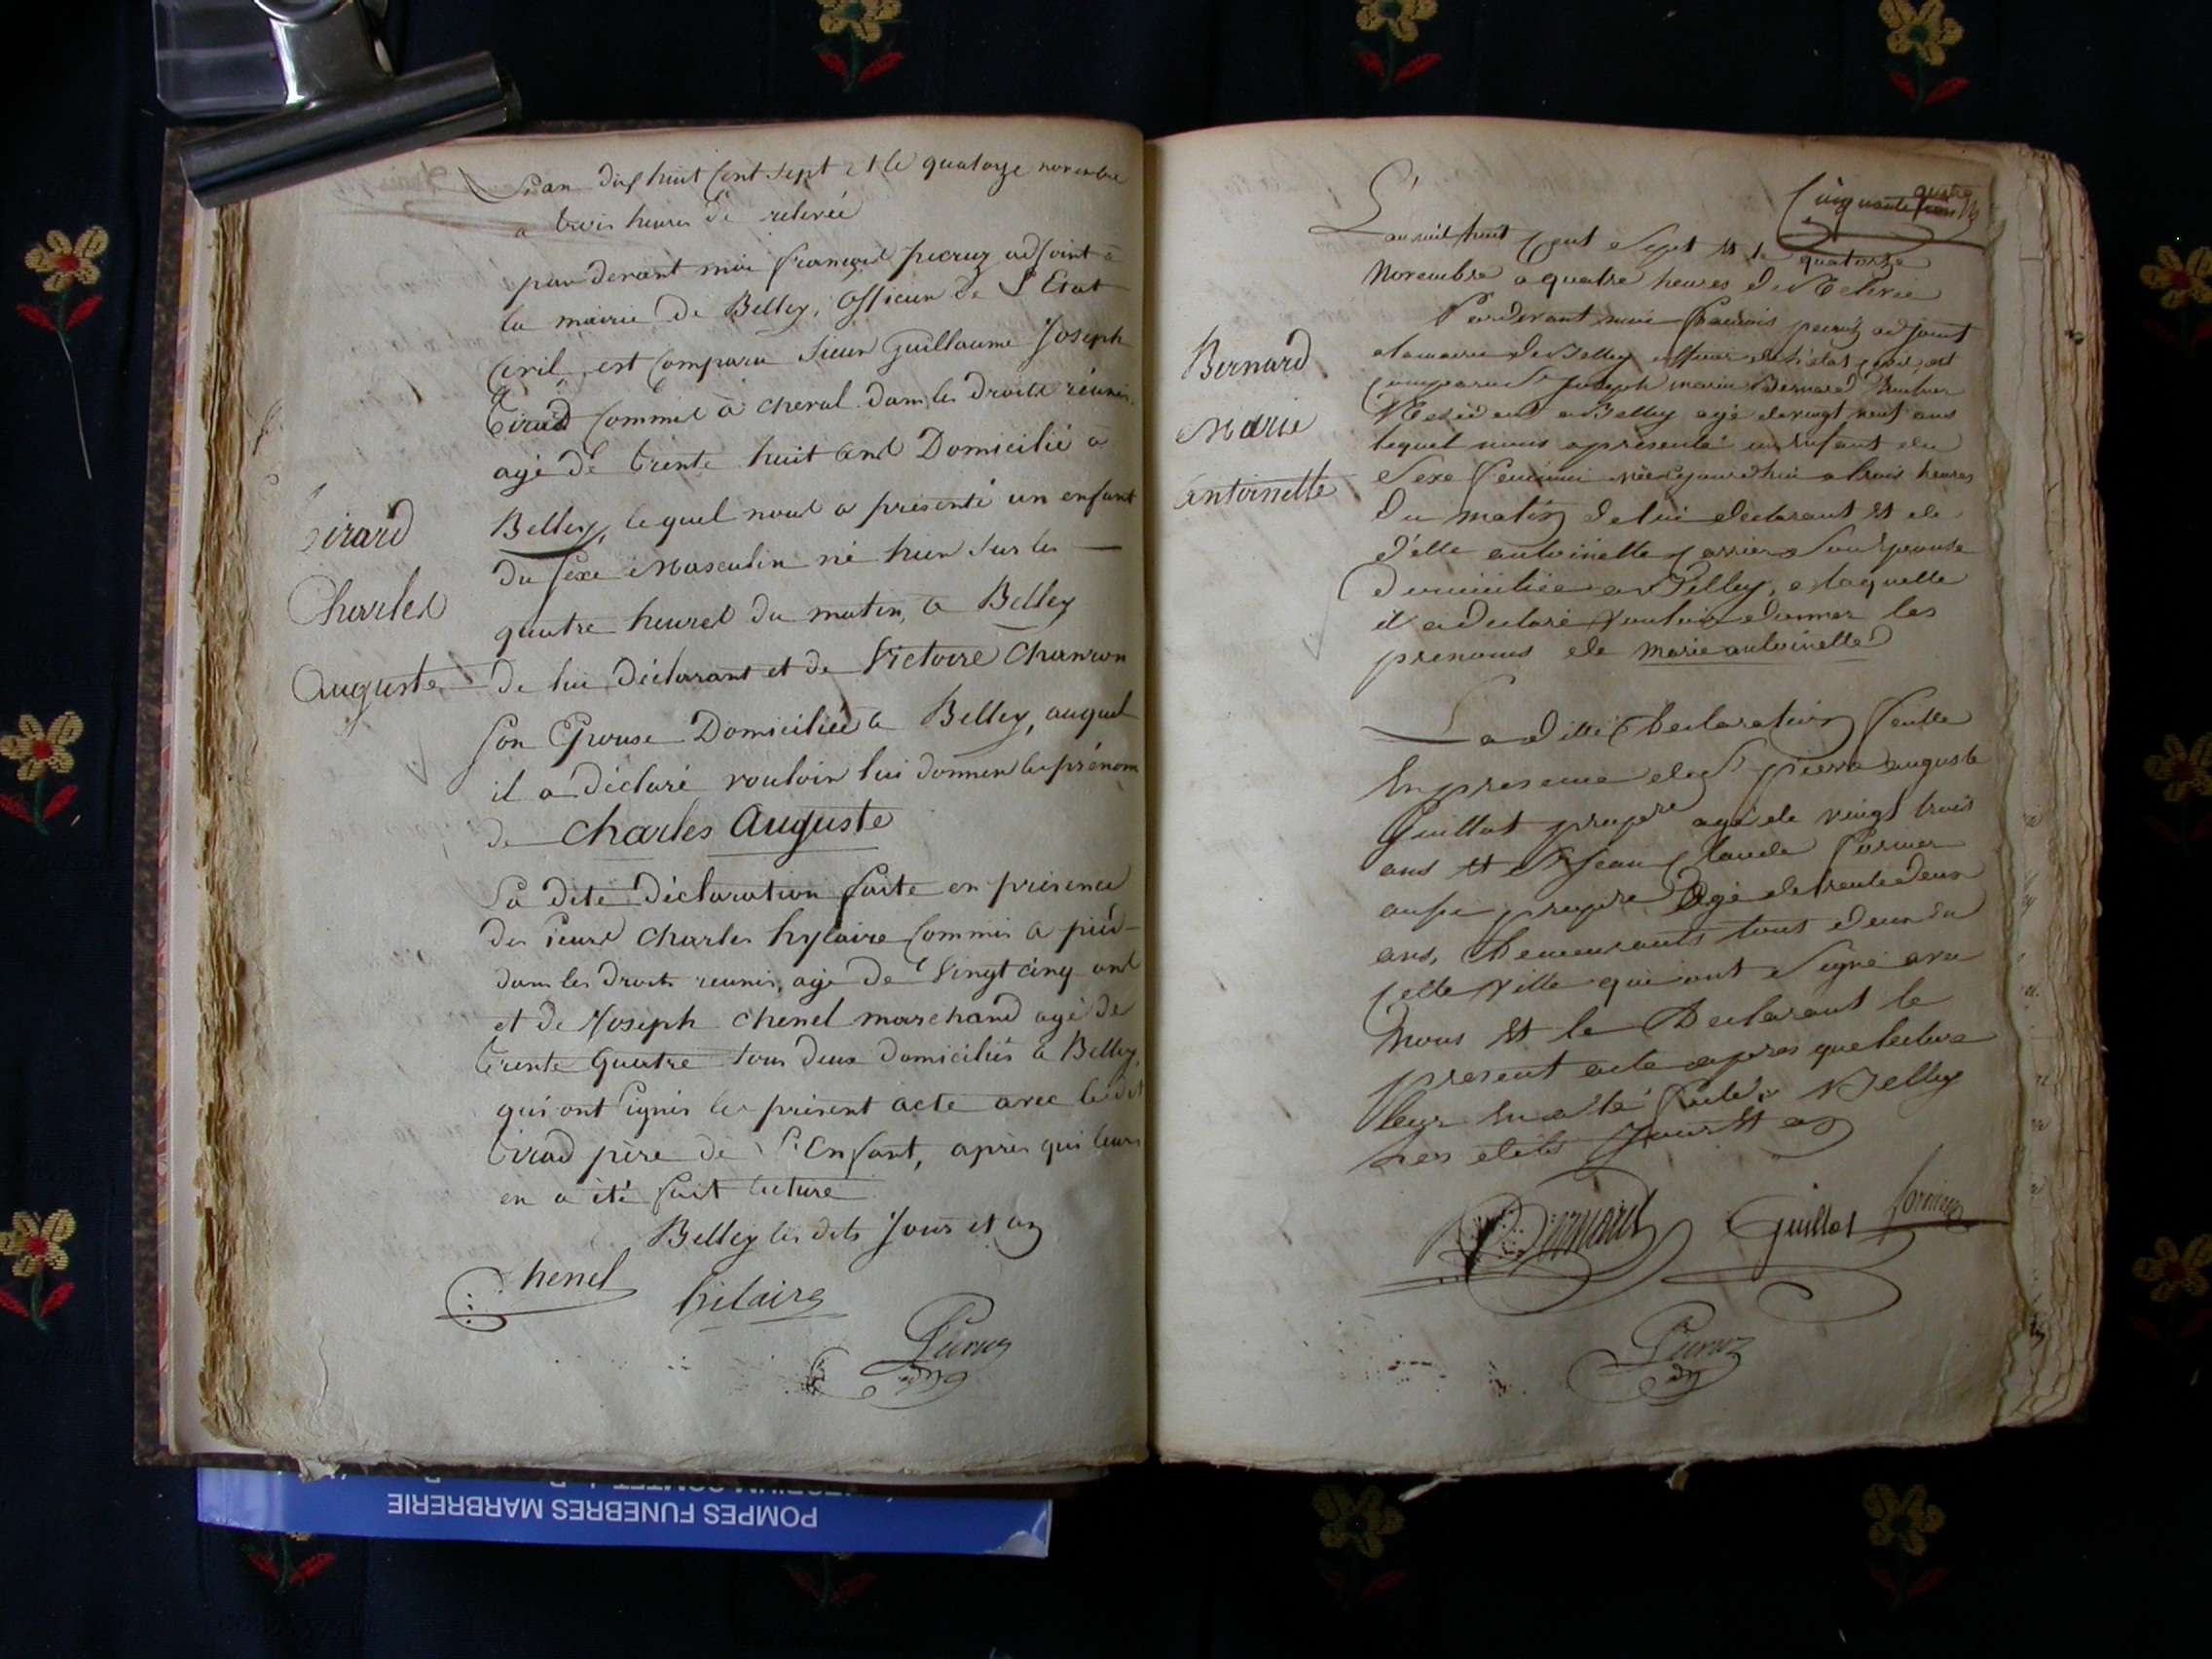 L'an dix huit Cent Sept et le quatorze novembre
a trois heures de relevée
par devant moi françois pecruz adjoint a
la mairie de Belley, officier de L'Etat
Civil, est Comparu Sieur Guillaume Joseph
Girard Commis à cheval dans les droits réunis
agé de trente huit ans Domicilié à
Belley, lequel nous a présenté un enfant
du Sexe Masculin né hier Sur les
quatre heures du matin, a Belley
de lui déclarant et de Victoire
Son Epouse Domiciliée a Belley, auquel
il a déclaré vouloir lui donner les prénom
de Charles Auguste
La dite déclaration faite en présence
des Sieurs Charles hylaire Commis a pied
dans les droits reunis, agé de vingt cinq ans
et de Joseph Chenel marchand agé de
trente quatre tous deux domiciliés a Belley,
qui ont signés le présent acte avec le dit
Girad père de L'Enfant, après qui leurs
en a été fait lecture
Belley les dits Jour et an
Girard
Charles
Auguste
Chenel
hilaire
Cinquante quatre
L'an mil huit Cent Sept et le quatorze
Novembre a quatre heures de Relevée
Pardevant moi francois pecruz adjoint
a la mairie de Belley officier de l'état civil, est
Comparu Sr Joseph marie Bernard
Résident a Belley agé de vingt neuf ans
lequel nous a présenté un Enfant du
Sexe feminin née ce jourd'hui a trois heures
du matin de lui declarant et de
d'elle antoinette Son Epouse
domiciliée a Belley, a laquelle
il a declaré vouloir donner les
prenoms de marie antoinette
La ditte Declaration faitte
En presence de Sr pierre auguste
Guillot propre agé de vingt trois
ans et Sr Jean Claude
aussi propre agé de trente deux
ans, Demeurants tous deux en
Cette Ville qui ont Signé avec
Nous et le Declarant le
present acte apres que lecture
leur En a été faite. a Belley
les dits Jour et an
Bernard
Marie
Antoinette
Bernard
Guillot
POMPES FUNEBRES MARBRERIE